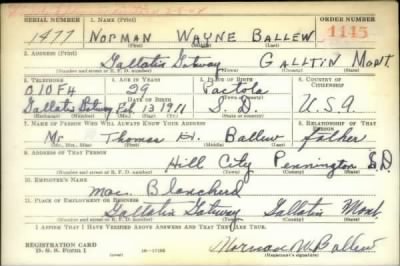 SERIAL NUMBER 1. NAME (Print) ORDER NUMBER
1477 NORMAN WAYNE BALLEW 1145
(First) (Middle) (Last)
2. ADDRESS (Print)
Gallatin Gateway GALLTIN MONT.
(Number and street or R. F. D. number) (Town) (County) (State)
3. TELEPHONE 4. AGE IN YEARS 5. PLACE OF BIRTH 6. COUNTRY OF CITIZENSHIP
010F4 29 Pactola
DATE OF BIRTH (Town or county)
Gallatin Gateway Feb 13 1911 S.D. U.S.A
(Exchange) (Number) (Mo.) (Day) (Yr.) (State or country)
7. NAME OF PERSON WHO WILL ALWAYS KNOW YOUR ADDRESS 8. RELATIONSHIP OF THAT PERSON
Mr Thomas H. Ballew father
(Mr., Mrs., Miss) (First) (Middle) (Last)
9. ADDRESS OF THAT PERSON
Hill City Pennington S.D
(Number and street or R. F. D. number) (Town) (County) (State)
10. EMPLOYER'S NAME
Mac. Blanchard
11. PLACE OF EMPLOYMENT OR BUSINESS
Gallatin Gateway Gallatin Mont.
(Number and street or R. F. D. number) (Town) (County) (State)
I AFFIRM THAT I HAVE VERIFIED ABOVE ANSWERS AND THAT THEY ARE TRUE.
REGISTRATION CARD Norman W Ballew
D. S. S. Form 1 16—17105 (Registrant's signature)